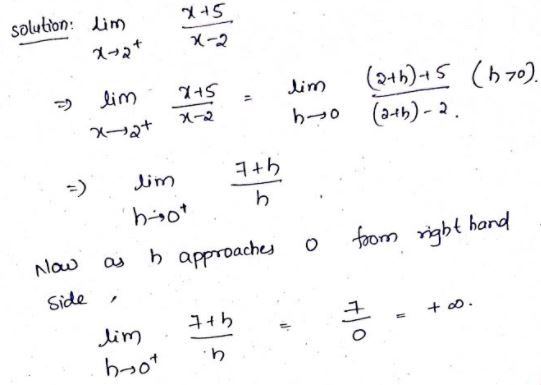 solution: lim x→2⁺ (x+5)/(x-2)
⇒ lim x→2⁺ (x+5)/(x-2) = lim h→0 ((2+h)+5)/((2+h)-2). (h>0).
⇒) lim h→0⁺ (7+h)/h
Now as h approaches 0 from right hand
side,
lim h→0⁺ (7+h)/h = 7/0 = +∞.